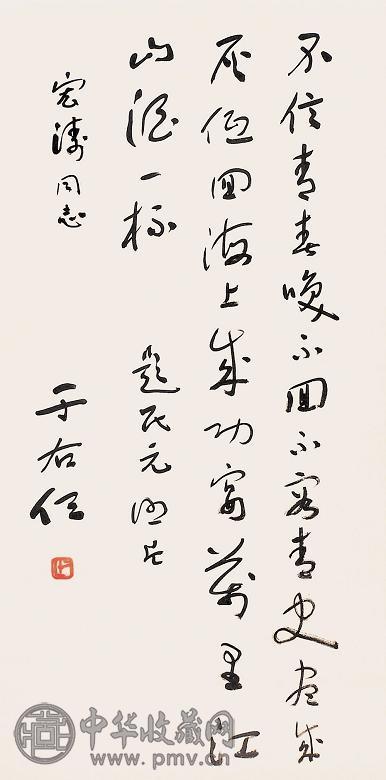 不信青春喚不回不容青史盡成
灰低回海上成功宴萬里江
山酒一杯 題民元照片
宏濤同志 于右任
中华收藏网
www.pmv.cn